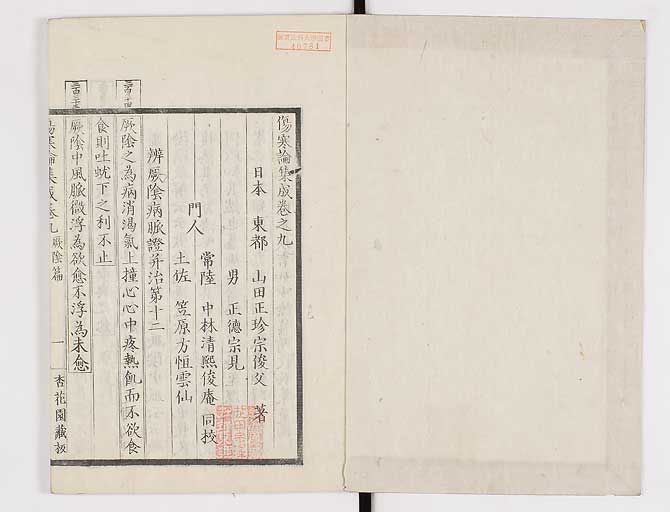 傷寒論集成卷之九
日本　東都　山田正珍宗俊父　著
男　正德宗見
門人
常陸　中林清熙俊庵　同挍
土佐　笠原方恒雲仙
辨厥陰病脈證并治第十二
厥陰之為病消渴氣上撞心心中疼熱飢而不欲食
食則吐蚘下之利不止
厥陰中風脈微浮為欲愈不浮為未愈
傷寒論集成卷九　厥陰篇　一　杏花園藏板